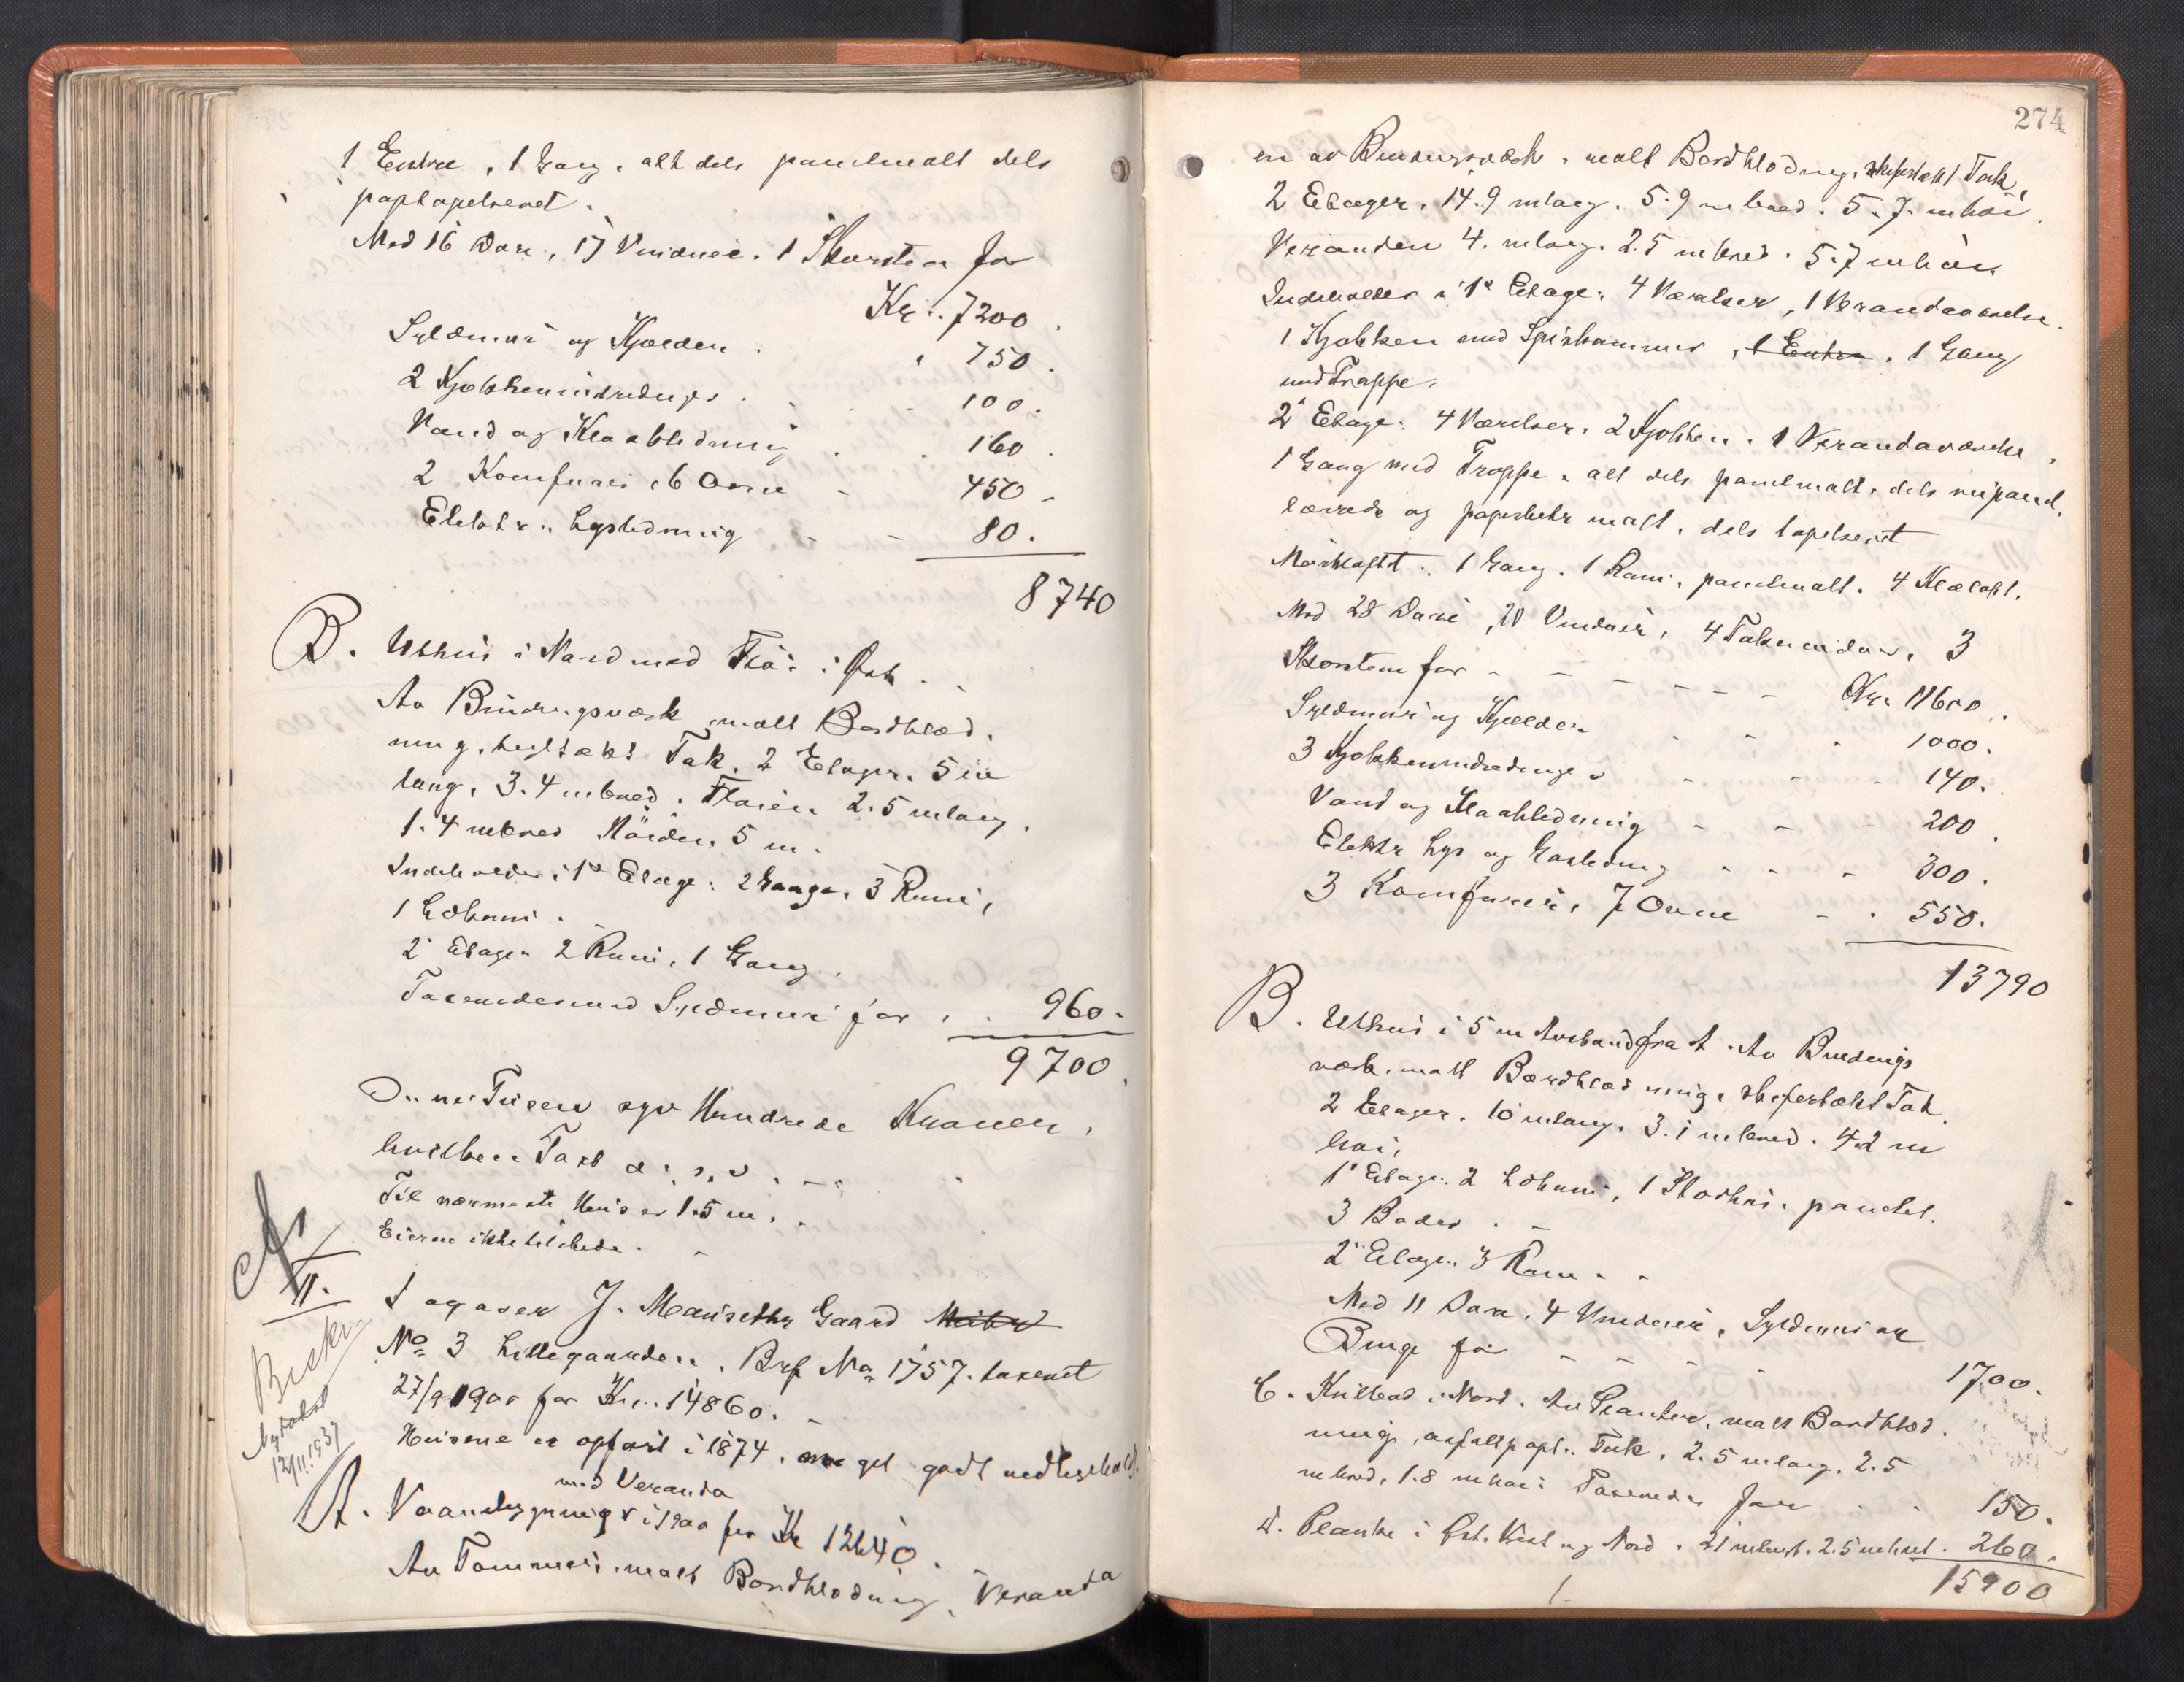 1 Entre, 1 Gang, alt dels panelmalt dels
paptapetseret.
Med 16 Døre, 17 Vinduer, 1 Skorsten for
Kr. 7200.
Syldmur og Kjælder. " 750.
2 Kjøkkenindredninger. - - 100.
Vand og Kloakledning . . 160.
2 Komfurer, 6 Ovne - 450 -
Elektr. Lysledning - - 80.
8740
B. Uthus i Nord med Fløi i Øst. -
Av Bindingsværk, malt Bordklæd-
ning, teglstækt Tak. 2 Etager. 5 m
lang, 3.4 m bred. Fløien 2.5 m lang,
1.4 m bred Høiden 5 m.
Indeholder i 1e Etage: 2 Gange, 3 Rum,
1 Lokum.
2' Etage 2 Rum, 1 Gang.
Taxeredes med Syldmur for . . 960.-
9700.
Ni Tusen syv Hundrede Kroner,
hvilken Taxt o. s. v. -
Til nærmeste Hus er 1.5 m.
Eierne ikke tilstede. -
II.
J. Gaard
No 3 Lillegaarden. Brf No 1757. taxeret
27/9 1900 for Kr. 14860. -
Husene er opført i 1874, meget godt vedlikehold.
Nytakst
12/11.1937
med Veranda
A. Vaaningsbygning i 1900 for Kr 12640.
Av Tømmer, malt Bordklædning, Veranda
274
en av Bindingsværk, malt Bordklædning, skifertækt Tak,
2 Etager, 14.9 m lang. 5.9 m bred. 5.7 m høi.
Veranden 4. m lang. 2.5 m bred. 5.7 m høi.
Indeholder i 1e Etage: 4 Værelser, 1 Verandaværelse.
1 Kjøkken med Spiskammer, 1 Entre, 1 Gang
med Trappe.
2' Etage: 4 Værelser, 2 Kjøkken, 1 Verandaværelse,
1 Gang med Trappe, alt dels panelmalt, dels
og malt, dels tapetseret
Mørkloftet: 1 Gang. 1 Rum, panelmalt. 4 Klæloft.
Med 28 Døre, 20 Vinduer, 4 Takvinduer, 3
Skorsten for - - - - - - Kr. 11600.
Syldmur og Kjælder - - - 1000.
3 Kjøkkenindredninger - - - 140.
Vand og Kloakledning - - - 200.
Elektr Lys og Gasledning - - - 300.
3 Komfurer, 7 Ovne - - 550.
13790
B. Uthus i 5 m Avstand fra A. Av Bindings
værk, malt Bordklædning, skifertækt Tak.
2 Etager. 10 m lang, 3.1 m bred. 4.2 m
høi,
1' Etage. 2 Lokum, 1 panelet.
3 Boder. -
2' Etage. 3 Rum - -
Med 11 Døre, 4 Vinduer, Syldmur og
Binge for - - - - - 1700.
C. i Nord. Av Planker, malt Bordklæd-
ning, asfaltpapt. Tak, 2.5 m lang, 2.5
m bred, 1.8 m høi: Taxeredes for . . 150.
D. Planke i Øst, Vest og Nord. 21 m langt. 2.5 m høit. 260.
15900